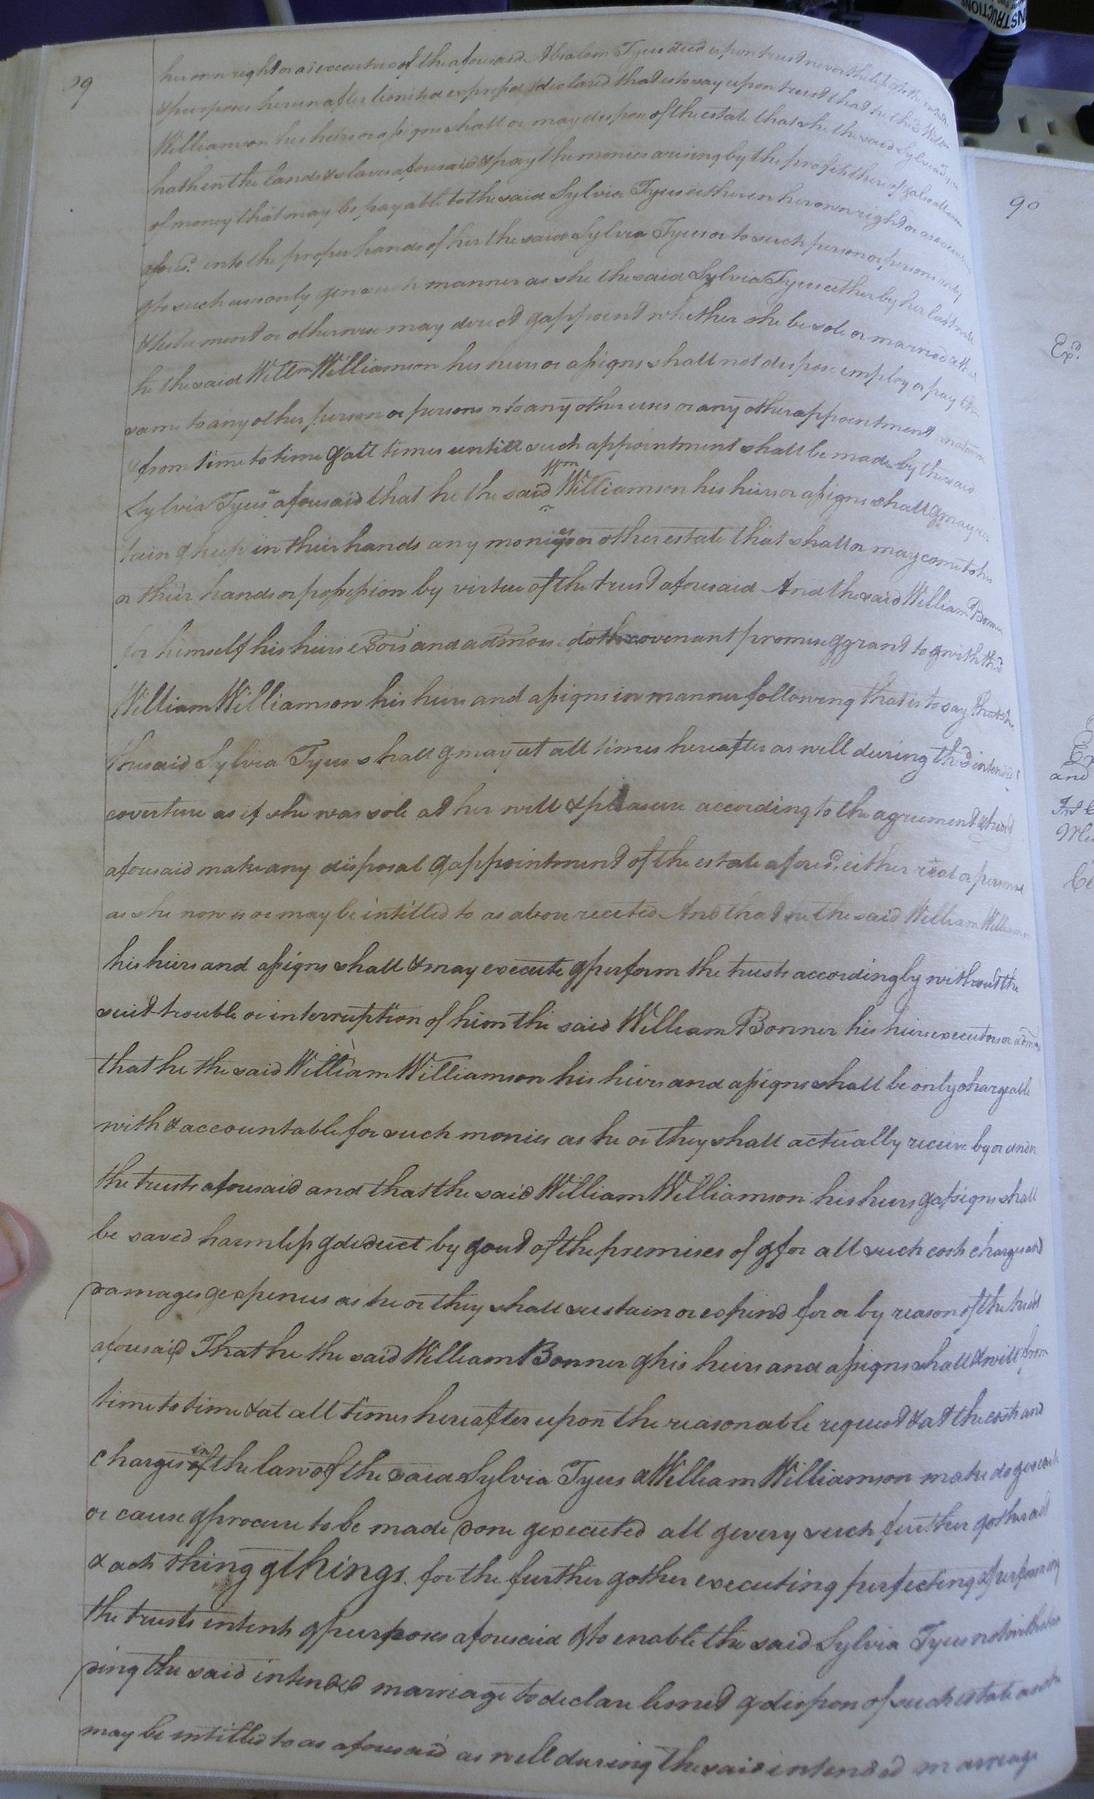 89
her own right or as executrix of the aforesaid Absalom Tyus decd upon trust nevertheless to the
& purposes herein after limited expressed & declared that is to say upon trust that he the sd Willm
Williamson his heirs or assigns shall or may dispose of the estate that she the said Sylvia Tyus
hath in the lands & slaves aforesaid & pay the monies arising by the profits thereof & also all sums
of money that may be payable to the said Sylvia Tyus either in her own right or as executrix
afores.d into the proper hands of her the said Sylvia Tyus or to such person or persons only
& to such uses only & in such manner as she the said Sylvia Tyus either by her last will
& testament or otherwise may direct & appoint whether she be sole or married & that
he the said Willm Williamson his heirs or assigns shall not dispose employ or pay the
same to any other person or persons or to any other uses or any other appointment
& from time to time & all times untill such appointment shall be made by the said
Sylvia Tyus aforesaid that he the said Wm Williamson his heirs or assigns shall & may re
tain & keep in their hands any monies or other estate that shall or may come to his
or their hands or possession by virtue of the trust aforesaid And the said William Bonner
for himself his heirs exors and admors doth covenant promise & grant to & with the sd
William Williamson his heirs and assigns in manner following that is to say that she
the said Sylvia Tyus shall & may at all times hereafter as well during the sd intended
coverture as if she was sole at her will & pleasure according to the agreement & trust
aforesaid make any disposal & appointment of the estate aforesd. either real or personal
as she now is or may be intitled to as above recited And that he the said William Williamson
his heirs and assigns shall & may execute & perform the trusts accordingly without the
suit trouble or interruption of him the said William Bonner his heirs executors or admors
that he the said William Williamson his heirs and assigns shall be only chargeable
with & accountable for such monies as he or they shall actually receive by or under
the trusts aforesaid and that the said William Williamson his heirs & assigns shall
be saved harmless & deduct by & out of the premises of & for all such costs charges and
damages & expences as he or they shall sustain or expend for or by reason of the trust
aforesaid That he the said William Bonner & his heirs and assigns shall & will from
time to time & at all times hereafter upon the reasonable request & at the costs and
charges in of the law of the said Sylvia Tyus & William Williamson make do & execute
or cause & procure to be made done & executed all & every such further & other act
& acts thing & things for the further & other executing perfecting & performing
the trusts intents & purposes aforesaid & to enable the said Sylvia Tyus notwithstan
ding the said intended marriage to declare limit & dispose of such estate as she
may be intitled to as aforesaid as well during the said intended marriage
90
Exd.
and